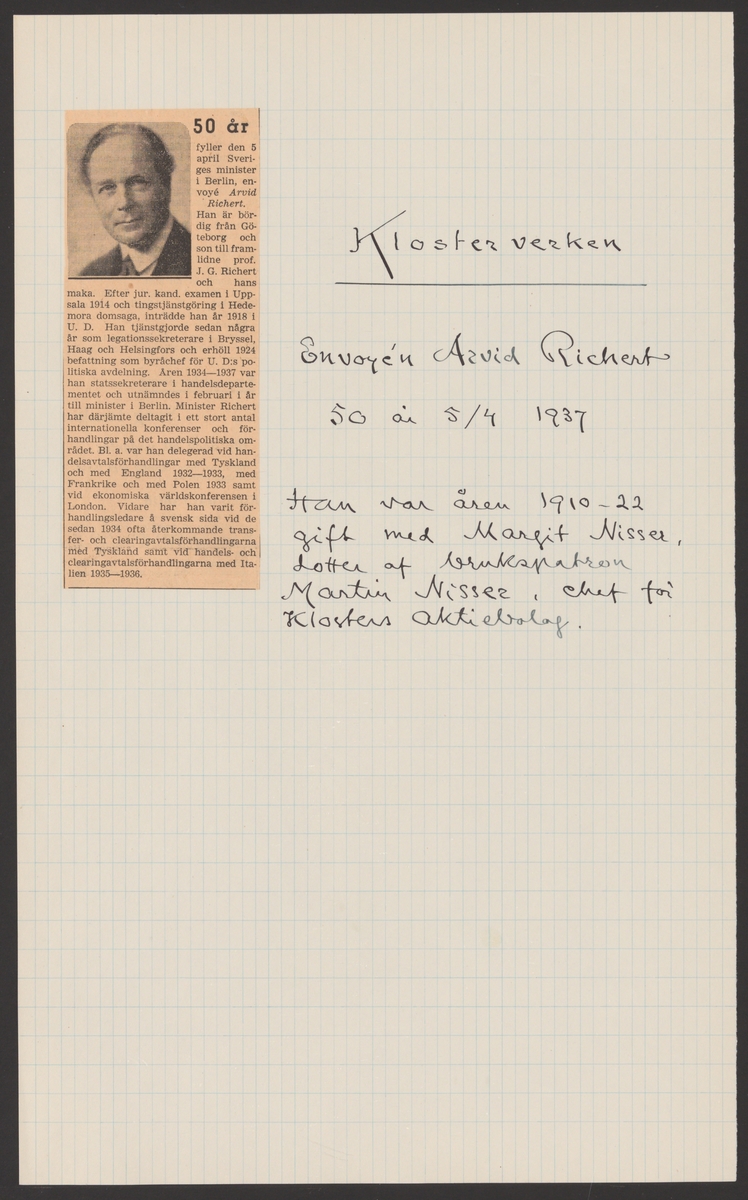 50 år
fyller den 5
april Sveri-
ges minister
i Berlin, en-
voyé Arvid
Richert.
Han är bör-
dig från Gö-
teborg och
son till fram-
lidne prof.
J. G. Richert
och hans
maka. Efter jur. kand. examen i Upp-
sala 1914 och tingstjänstgöring i Hede-
mora domsaga, inträdde han år 1918 i
U. D. Han tjänstgjorde sedan några
år som legationssekreterare i Bryssel,
Haag och Helsingfors och erhöll 1924
befattning som byråchef för U. D:s po-
litiska avdelning. Åren 1934—1937 var
han statssekreterare i handelsdeparte-
mentet och utnämndes i februari i år
till minister i Berlin. Minister Richert
har därjämte deltagit i ett stort antal
internationella konferenser och för-
handlingar på det handelspolitiska om-
rådet. Bl. a. var han delegerad vid han-
delsavtalsförhandlingar med Tyskland
och med England 1932—1933, med
Frankrike och med Polen 1933 samt
vid ekonomiska världskonferensen i
London. Vidare har han varit för-
handlingsledare å svensk sida vid de
sedan 1934 ofta återkommande trans-
fer- och clearingavtalsförhandlingarna
med Tyskland samt vid handels- och
clearingavtalsförhandlingarna med Ita-
lien 1935—1936.
Klosterverken
Envoyé'n Arvid Richert
50 år 5/4 1937
Han var åren 1910-22
gift med Margit Nisser,
dotter af brukspatron
Martin Nisser, chef för
Klosters Aktiebolag.